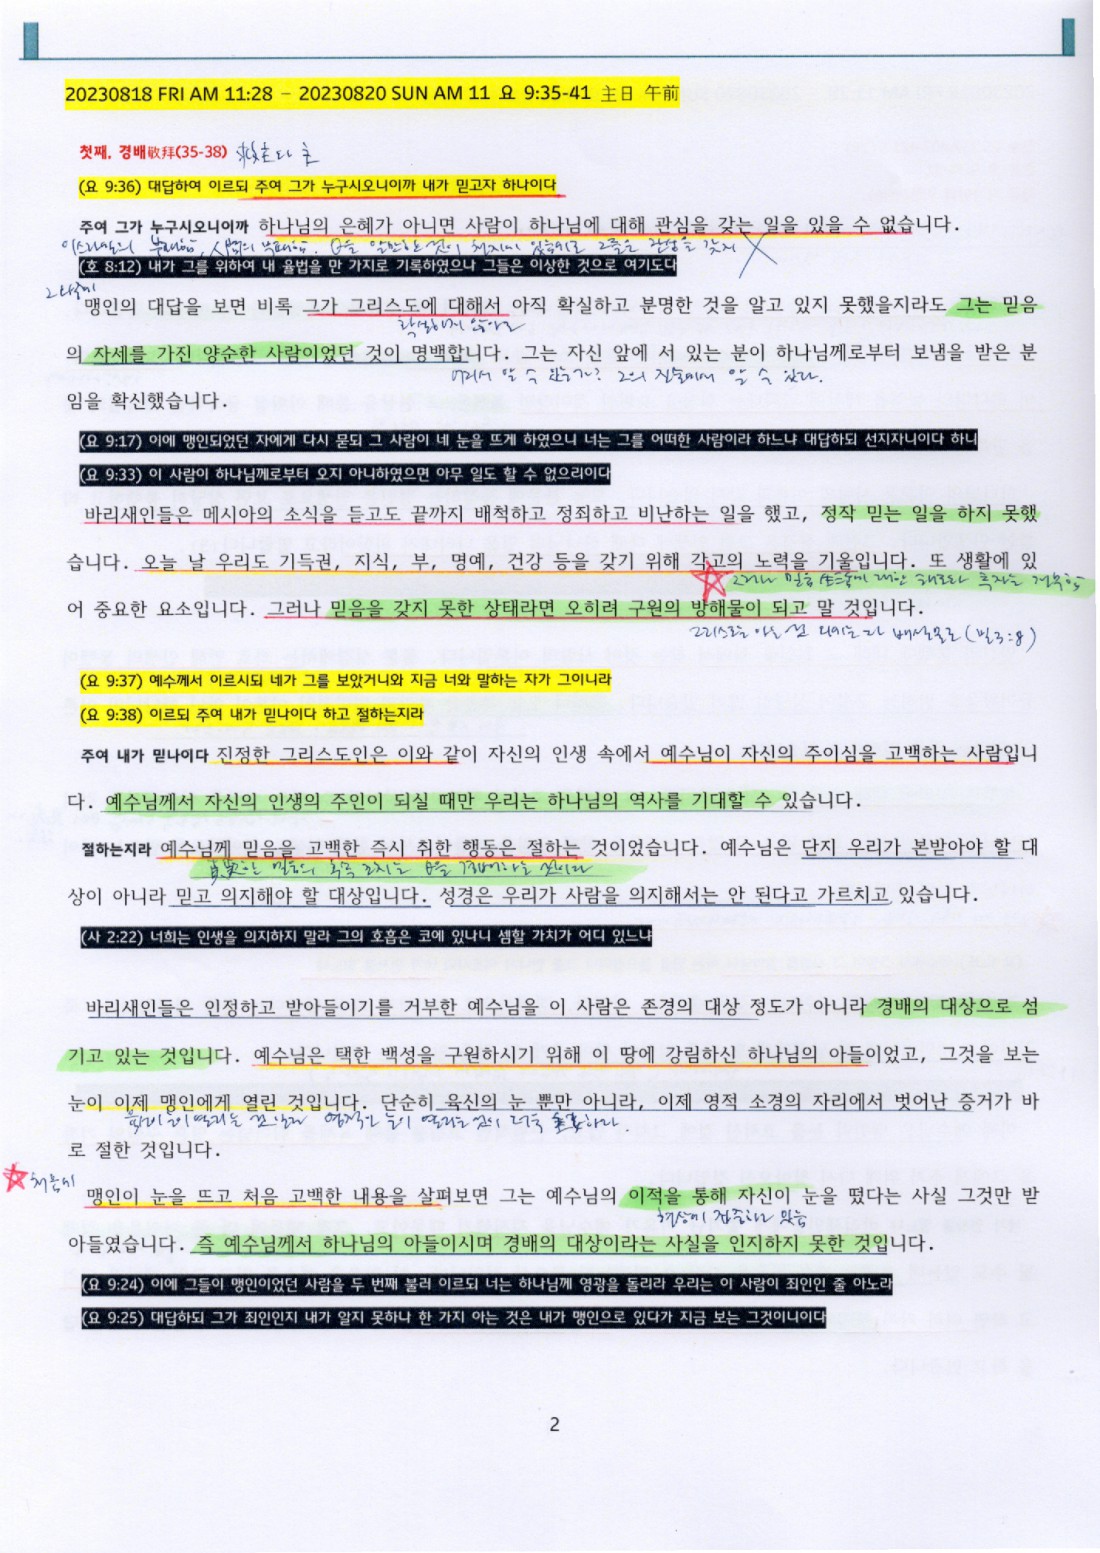 20230818 FRI AM 11:28 – 20230820 SUN AM 11 요 9:35-41 主日 午前
첫째, 경배敬拜(35-38)
(요 9:36) 대답하여 이르되 주여 그가 누구시오니이까 내가 믿고자 하나이다
주여 그가 누구시오니이까 하나님의 은혜가 아니면 사람이 하나님에 대해 관심을 갖는 일을 있을 수 없습니다.
(호 8:12) 내가 그를 위하여 내 율법을 만 가지로 기록하였으나 그들은 이상한 것으로 여기도다
맹인의 대답을 보면 비록 그가 그리스도에 대해서 아직 확실하고 분명한 것을 알고 있지 못했을지라도 그는 믿음
의 자세를 가진 양순한 사람이었던 것이 명백합니다. 그는 자신 앞에 서 있는 분이 하나님께로부터 보냄을 받은 분
어디서 알 수 있는가? 그의 진술에서 알 수 있다.
임을 확신했습니다.
(요 9:17) 이에 맹인되었던 자에게 다시 묻되 그 사람이 네 눈을 뜨게 하였으니 너는 그를 어떠한 사람이라 하느냐 대답하되 선지자니이다 하니
(요 9:33) 이 사람이 하나님께로부터 오지 아니하였으면 아무 일도 할 수 없으리이다
바리새인들은 메시아의 소식을 듣고도 끝까지 배척하고 정죄하고 비난하는 일을 했고, 정작 믿는 일을 하지 못했
습니다. 오늘 날 우리도 기득권, 지식, 부, 명예, 건강 등을 갖기 위해 각고의 노력을 기울입니다. 또 생활에 있
어 중요한 요소입니다. 그러나 믿음을 갖지 못한 상태라면 오히려 구원의 방해물이 되고 말 것입니다.
그리스도를 아는 것 외에는 다 배설물로 (빌 3:8)
(요 9:37) 예수께서 이르시되 네가 그를 보았거니와 지금 너와 말하는 자가 그이니라
(요 9:38) 이르되 주여 내가 믿나이다 하고 절하는지라
주여 내가 믿나이다 진정한 그리스도인은 이와 같이 자신의 인생 속에서 예수님이 자신의 주이심을 고백하는 사람입니
다. 예수님께서 자신의 인생의 주인이 되실 때만 우리는 하나님의 역사를 기대할 수 있습니다.
절하는지라 예수님께 믿음을 고백한 즉시 취한 행동은 절하는 것이었습니다. 예수님은 단지 우리가 본받아야 할 대
상이 아니라 믿고 의지해야 할 대상입니다. 성경은 우리가 사람을 의지해서는 안 된다고 가르치고 있습니다.
(사 2:22) 너희는 인생을 의지하지 말라 그의 호흡은 코에 있나니 셈할 가치가 어디 있느냐
바리새인들은 인정하고 받아들이기를 거부한 예수님을 이 사람은 존경의 대상 정도가 아니라 경배의 대상으로 섬
기고 있는 것입니다. 예수님은 택한 백성을 구원하시기 위해 이 땅에 강림하신 하나님의 아들이었고, 그것을 보는
눈이 이제 맹인에게 열린 것입니다. 단순히 육신의 눈 뿐만 아니라, 이제 영적 소경의 자리에서 벗어난 증거가 바
로 절한 것입니다.
처음에
맹인이 눈을 뜨고 처음 고백한 내용을 살펴보면 그는 예수님의 이적을 통해 자신이 눈을 떴다는 사실 그것만 받
현상에 집중하고 있음
아들였습니다. 즉 예수님께서 하나님의 아들이시며 경배의 대상이라는 사실을 인지하지 못한 것입니다.
(요 9:24) 이에 그들이 맹인이었던 사람을 두 번째 불러 이르되 너는 하나님께 영광을 돌리라 우리는 이 사람이 죄인인 줄 아노라
(요 9:25) 대답하되 그가 죄인인지 내가 알지 못하나 한 가지 아는 것은 내가 맹인으로 있다가 지금 보는 그것이니이다
2